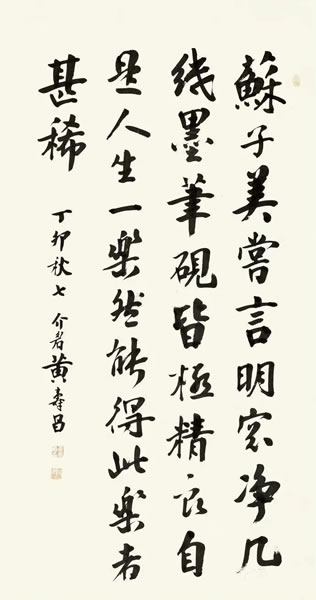 蘇子美嘗言明窓净几
紙墨筆硯皆極精良自
是人生一樂然能得此樂者
甚稀
丁卯秋七 介 黃壽